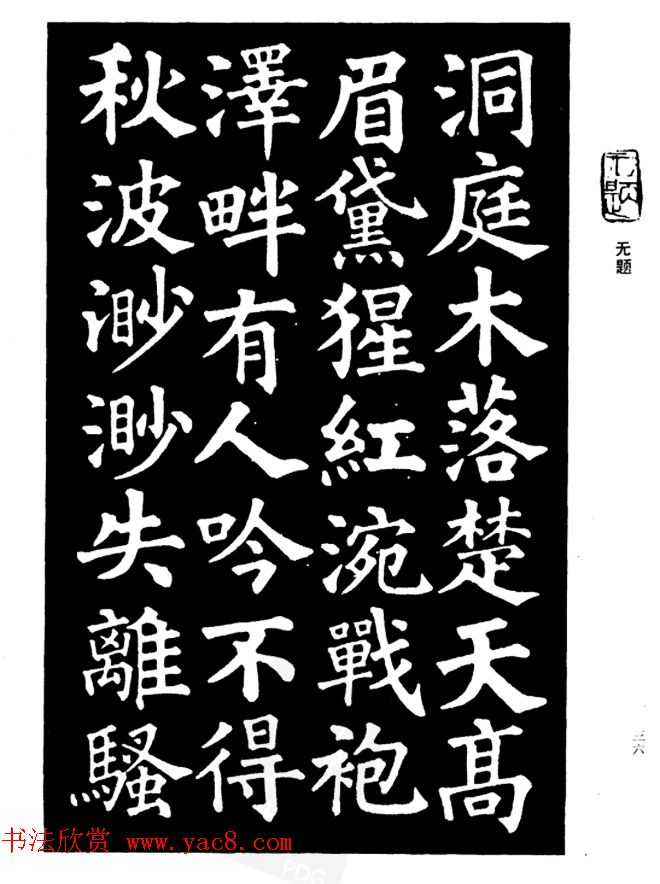 洞庭木落楚天高
眉黛猩紅涴戰袍
澤畔有人吟不得
秋波渺渺失離騷
无题
无题
三六
书法欣赏 www.yac8.com
PDG